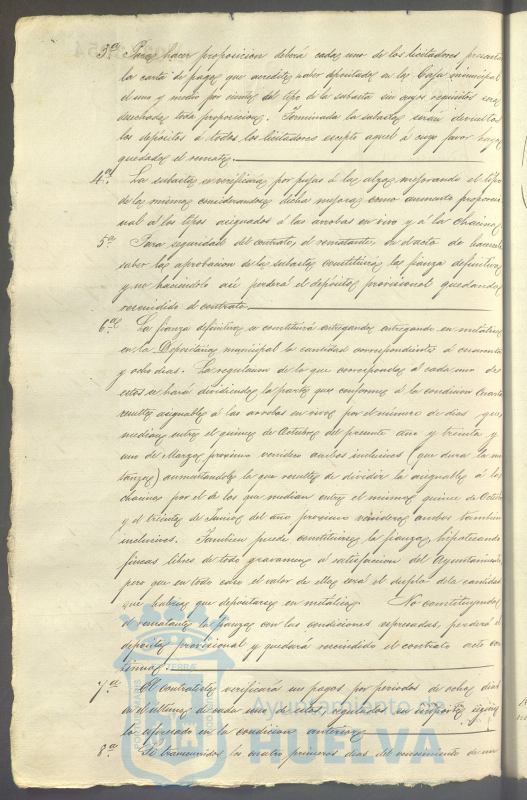 3ª Para hacer proposicion deberá cada uno de los licitadores presentar
la carta de pago que acredite haber depositado en la Caja municipal
el uno y medio por ciento del tipo de la subasta sin cuyo requisito será
desechada toda proposicion. Terminada la subasta seran devueltos
los depósitos á todos los licitadores escepto aquel á cuyo favor haya
quedado el remate.
4ª La subasta se verificará por pujas á la alza mejorando el tipo
de la misma considerandose dicha mejora como aumento proporcio
nal á los tipos asignados á las arrobas en vivo y á la chacina
5ª Para seguridad del contrato, el rematante en el acto de hacerle
saber la aprobacion de la subasta constituirá la fianza definitiva
y no haciendolo asi perderá el depósito provisional quedando
rescindido el contrato
6ª La fianza definitiva se constituirá entregando entregando en metalico
en la Depositaria municipal la cantidad correspondiente á cuarenta
y ocho dias. La regulacion de lo que corresponda á cada uno de
estos se hará dividiendo la parte que conforme á la condicion cuarta
resulte asignable á las arrobas en vivo por el número de dias que
median entre el quince de Octubre del presente año y treinta y
uno de Marzo proximo venidero ambos inclusives (que dura la ma
tanza) aumentandole lo que resulte de dividir la asignable á las
chacinas por el de los que median entre el mismo quince de Octubre
y el treinta de Junio del año proximo venidero ambos tambien
inclusives. Tambien puede constituirse la fianza, hipotecando
fincas libres de todo gravamen á satisfaccion del Ayuntamiento
pero que en todo caso el valor de ellas será el duplo de la cantidad
que habria que depositarse en metalico. No constituyendo
el rematante la fianza con las condiciones espresadas, perderá el
depósito provisional y quedará rescindido el contrato acto con
tinuo.
7ª El contratista verificará sus pagos por periodos de ocho dias
en el último de cada uno de estos, regulados su importe segun
lo espresado en la condicion anterior
8ª Si transcurridos los cuatro primeros dias del vencimiento de un
PORTUS MARIS
TERRAE
CUSTODIA
Ayuntamiento de
HUELVA